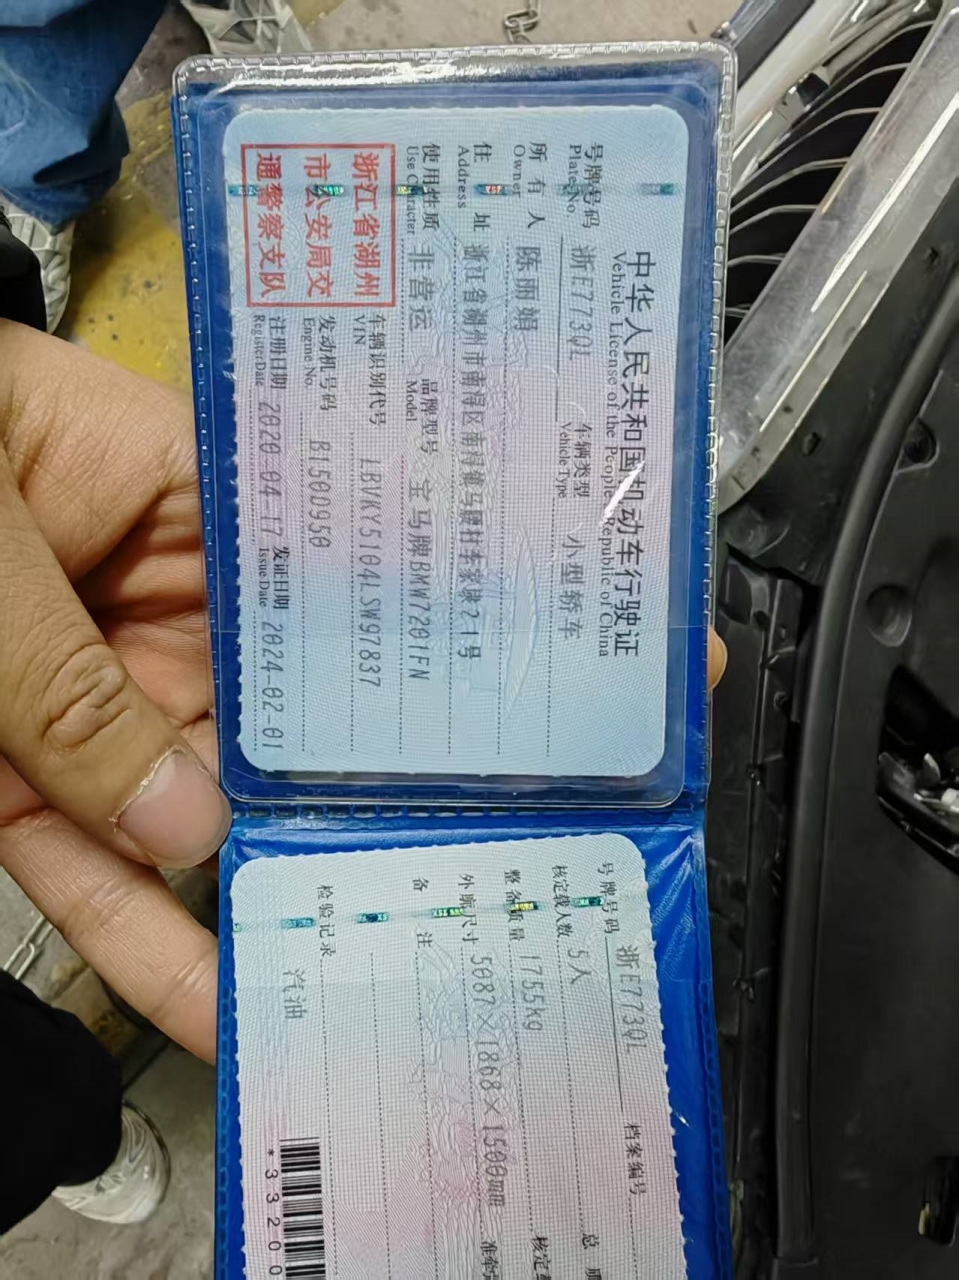 中华人民共和国机动车行驶证
Vehicle License of the People's Republic of China
号牌号码 浙E773QL 车辆类型 小型轿车
Plate No. Vehicle Type
所有人 陈丽娟
Owner
住址 浙江省湖州市南浔区南浔镇马腰村车家兜21号
Address
使用性质 非营运 品牌型号 宝马牌BMW7201FN
Use Character Model
浙江省湖州
市公安局交
通警察支队
车辆识别代号 LBVKY5104LSW97837
VIN
发动机号码 B1500950
Engine No.
注册日期 2020-04-17 发证日期 2024-02-01
Register Date Issue Date
号牌号码 浙E773QL 档案编号
核定载人数 5人 总质
整备质量 1755kg 核定
外廓尺寸 5087×1868×1500mm 准牵
备注
检验记录
汽油
*33200